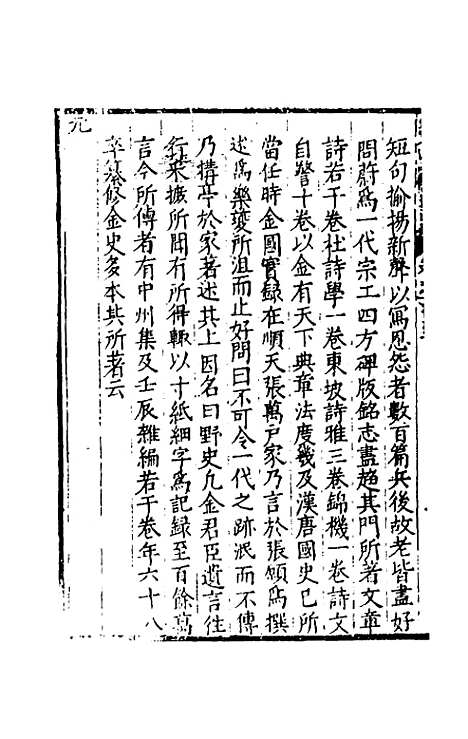 短句揄揚新聲以寓恩怨者數百篇兵後故老皆盡好
問蔚爲一代宗工四方碑版銘志盡趨其門所著文章
詩若干卷杜詩學一卷東坡詩雅三卷錦機一卷詩文
自警十卷以金有天下典章法度幾及漢唐國史已所
當任時金國實録在順天張萬戶家乃言於張願爲撰
述爲樂夔所沮而止好問曰不可令一代之跡泯而不傳
乃搆亭於家著述其上因名曰野史凡金君臣遺言往
行菜摭所聞有所得輒以寸紙細字爲記録至百餘萬
言今所傳者有中州集及壬辰雜編若干卷年六十八
卒纂修金史多本其所著云
元